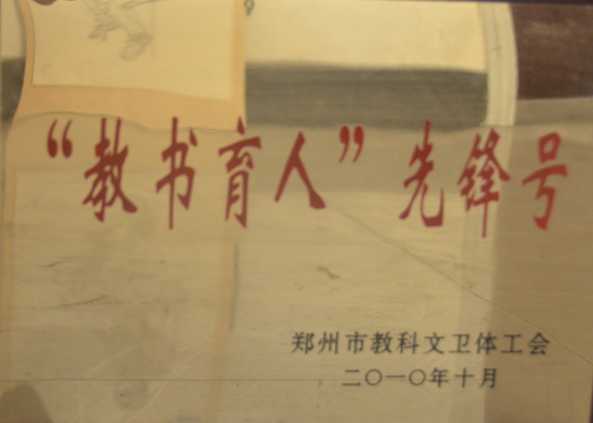 “教书育人”先锋号
郑州市教科文卫体工会
二〇一〇年十月